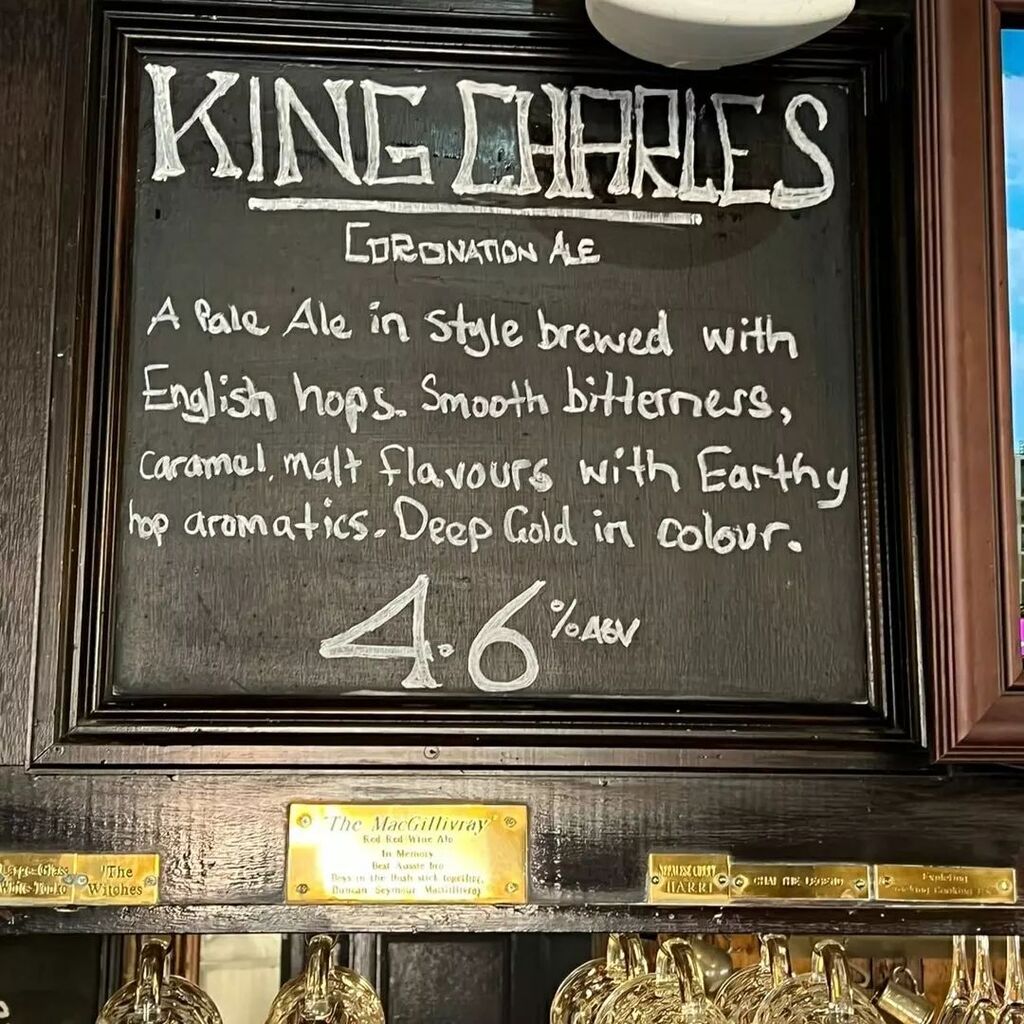 KING CHARLES
CORONATION ALE
A Pale Ale in style brewed with
English hops. Smooth bitterness,
caramel, malt flavours with Earthy
hop aromatics. Deep Gold in colour.
4.6% ABV
"The MacGillivray"
Red Red Wine Alp
In Memory
Best Aussie bro
Boys in the Bush stick together,
Duncan Seymour MacGillivray
"The
Witches"
HARRI
CHAI THE LEGEND